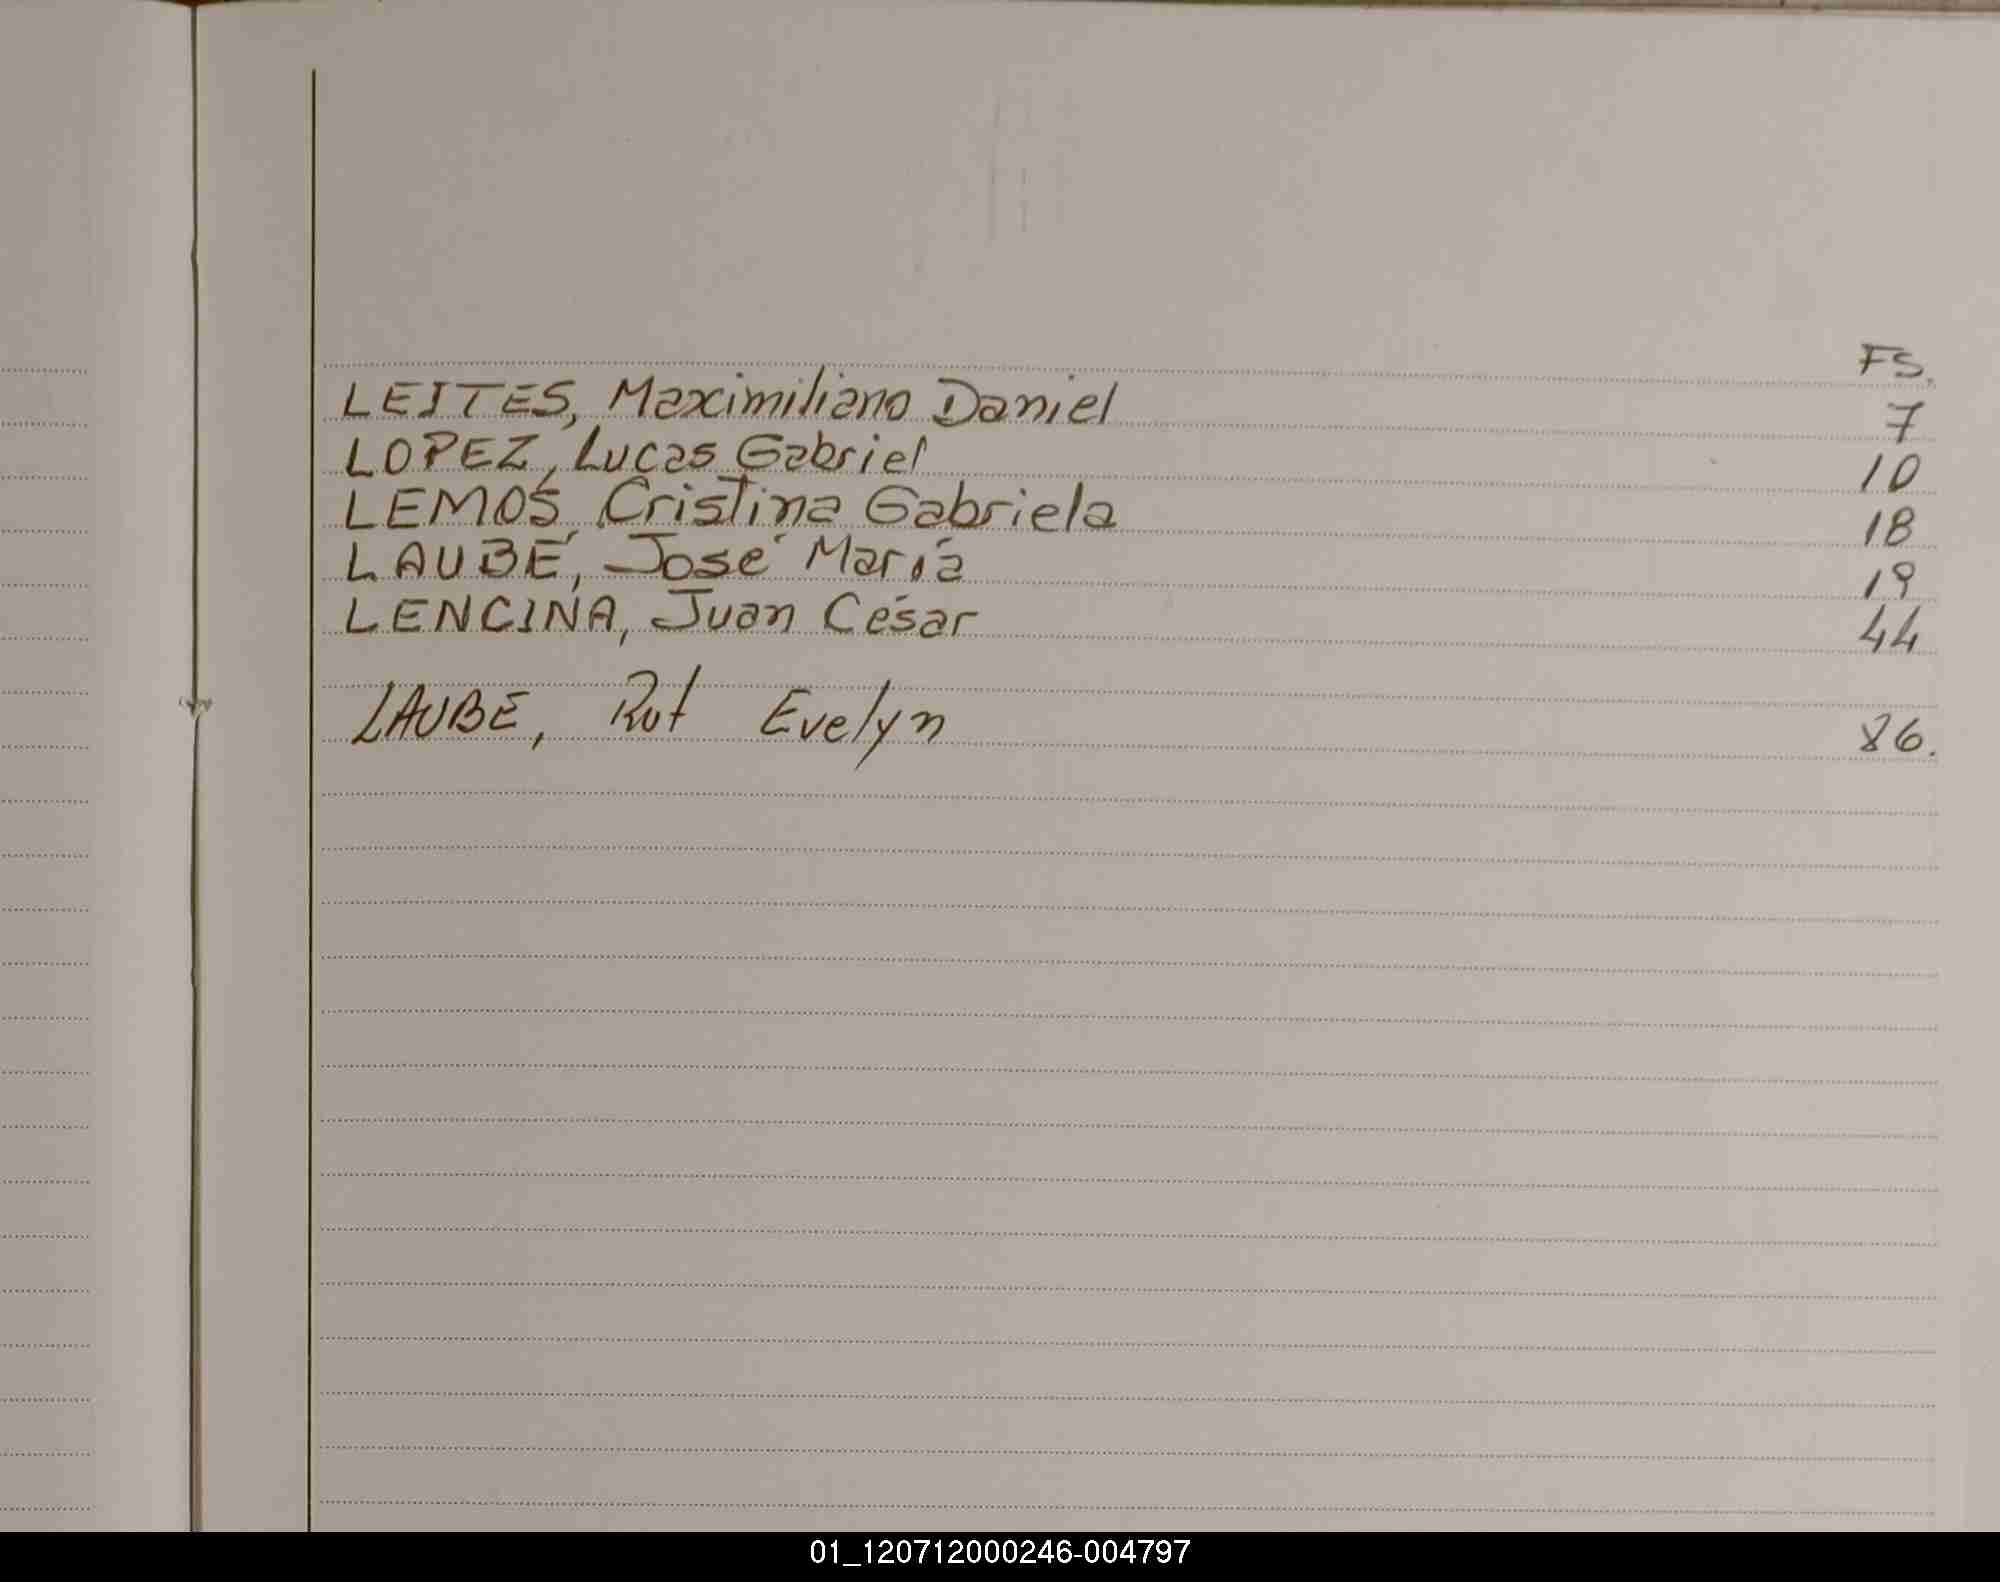 FS.
LEITES, Maximiliano Daniel 7
LOPEZ, Lucas Gabriel 10
LEMOS, Cristina Gabriela 18
LAUBÉ, José María 19
LENCINA, Juan César 44
LAUBE, Rut Evelyn 86.
01_120712000246-004797